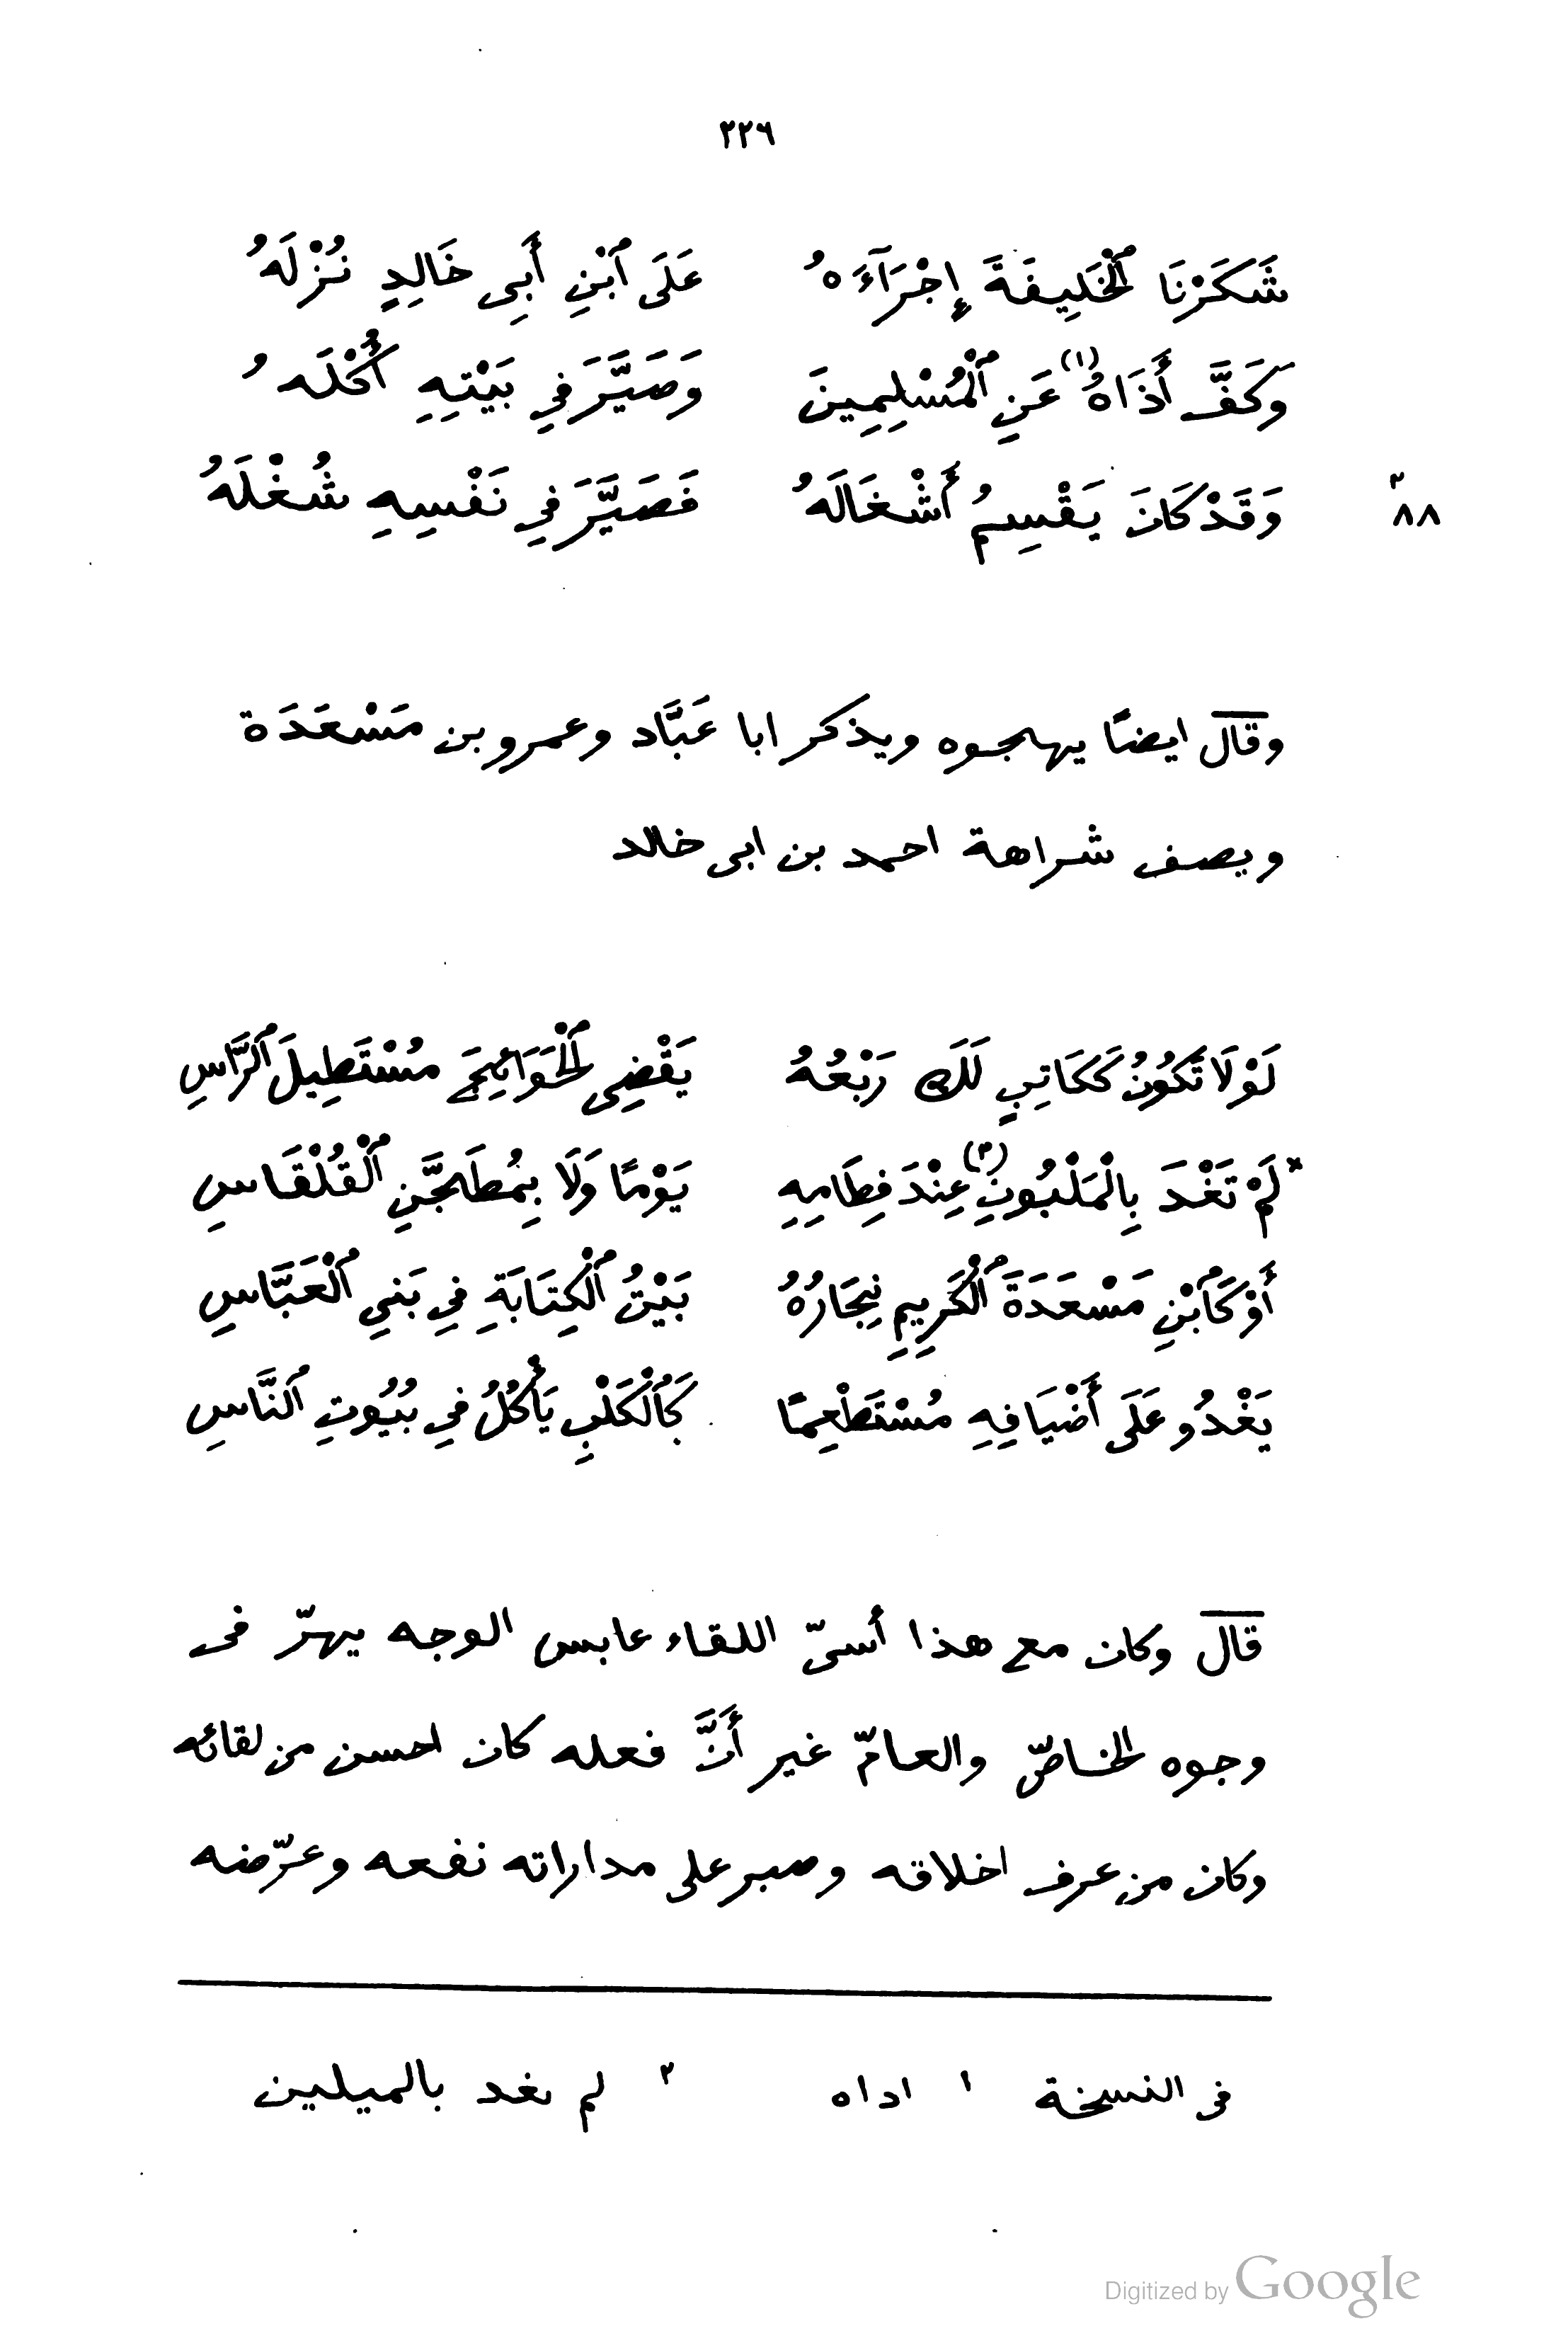 ٢٢٦
شَكَرْنَا ٱلْخَلِيفَةَ إِجْرَآءَهُ عَلَى ٱبْنِ أَبِى خَالِدٍ نُزْلَهُ
وَكَفَّ أَذَاهُ (١) عَنِ ٱلْمُسْلِمِينَ وَصَيَّرَ فِي بَيْتِهِ أُكْلَهُ
وَقَدْ كَانَ يَقْسِمُ أَشْغَالَهُ فَصَيَّرَ فِي نَفْسِهِ شُغْلَهُ ٨٨ ٢
وقال ايضًا يهجوه ويذكر ابا عَبَّاد وعمرو بن مَسْعَدَة
ويصف شراهة احمد بن ابى خالد
لَوْلَا تَكُونُ كَكَاتِبٍ لَكَ رَبْعُهُ يَقْضِى ٱلْحَوَائِجَ مُسْتَطِيلَ ٱلرَّاسِ
* لَمْ تَغْدَ بِالْمَلْبُونِ (٢) عِنْدَ فِطَامِهِ يَوْمًا وَلَا بِمُطَجَّنِ ٱلْقُلْقَاسِ
أَوْ كَٱبْنِ مَسْعَدَةَ ٱلْكَرِيمِ نِجَارُهُ بَيْتُ ٱلْكِتَابَةِ فِي بَنِي ٱلْعَبَّاسِ
يَغْدُو عَلَى أَضْيَافِهِ مُسْتَطْعِمًا كَٱلْكَلْبِ يَأْكُلُ فِي بُيُوتِ ٱلنَّاسِ
قال وكان مع هذا أسىّ اللقاء عابس الوجه يهرّ فى
وجوه الخاصّ والعامّ غير أَنَّ فعله كان احسن من لقائه
وكان من عرف اخلاقه وصبر على مداراته نفعه وعرّضه
فى النسخة ١ اداه ٢ لم نغد بالميلين
Digitized by Google